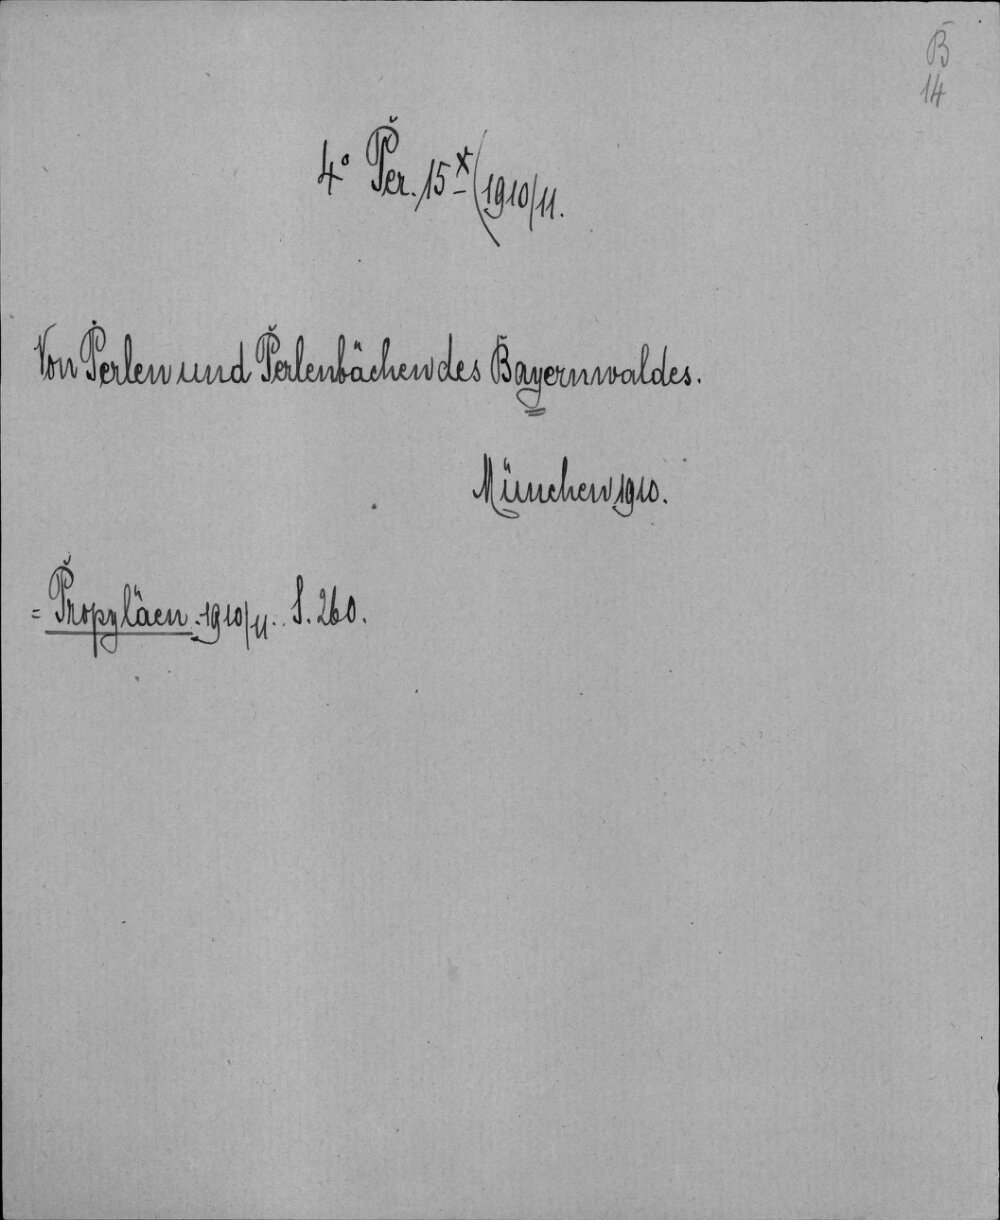 B
14
4° Per. 15ˣ (1910/11.
Von Perlen und Perlenbächen des Bayernwaldes.
München 1910.
= Propyläen. 1910/11. S. 260.